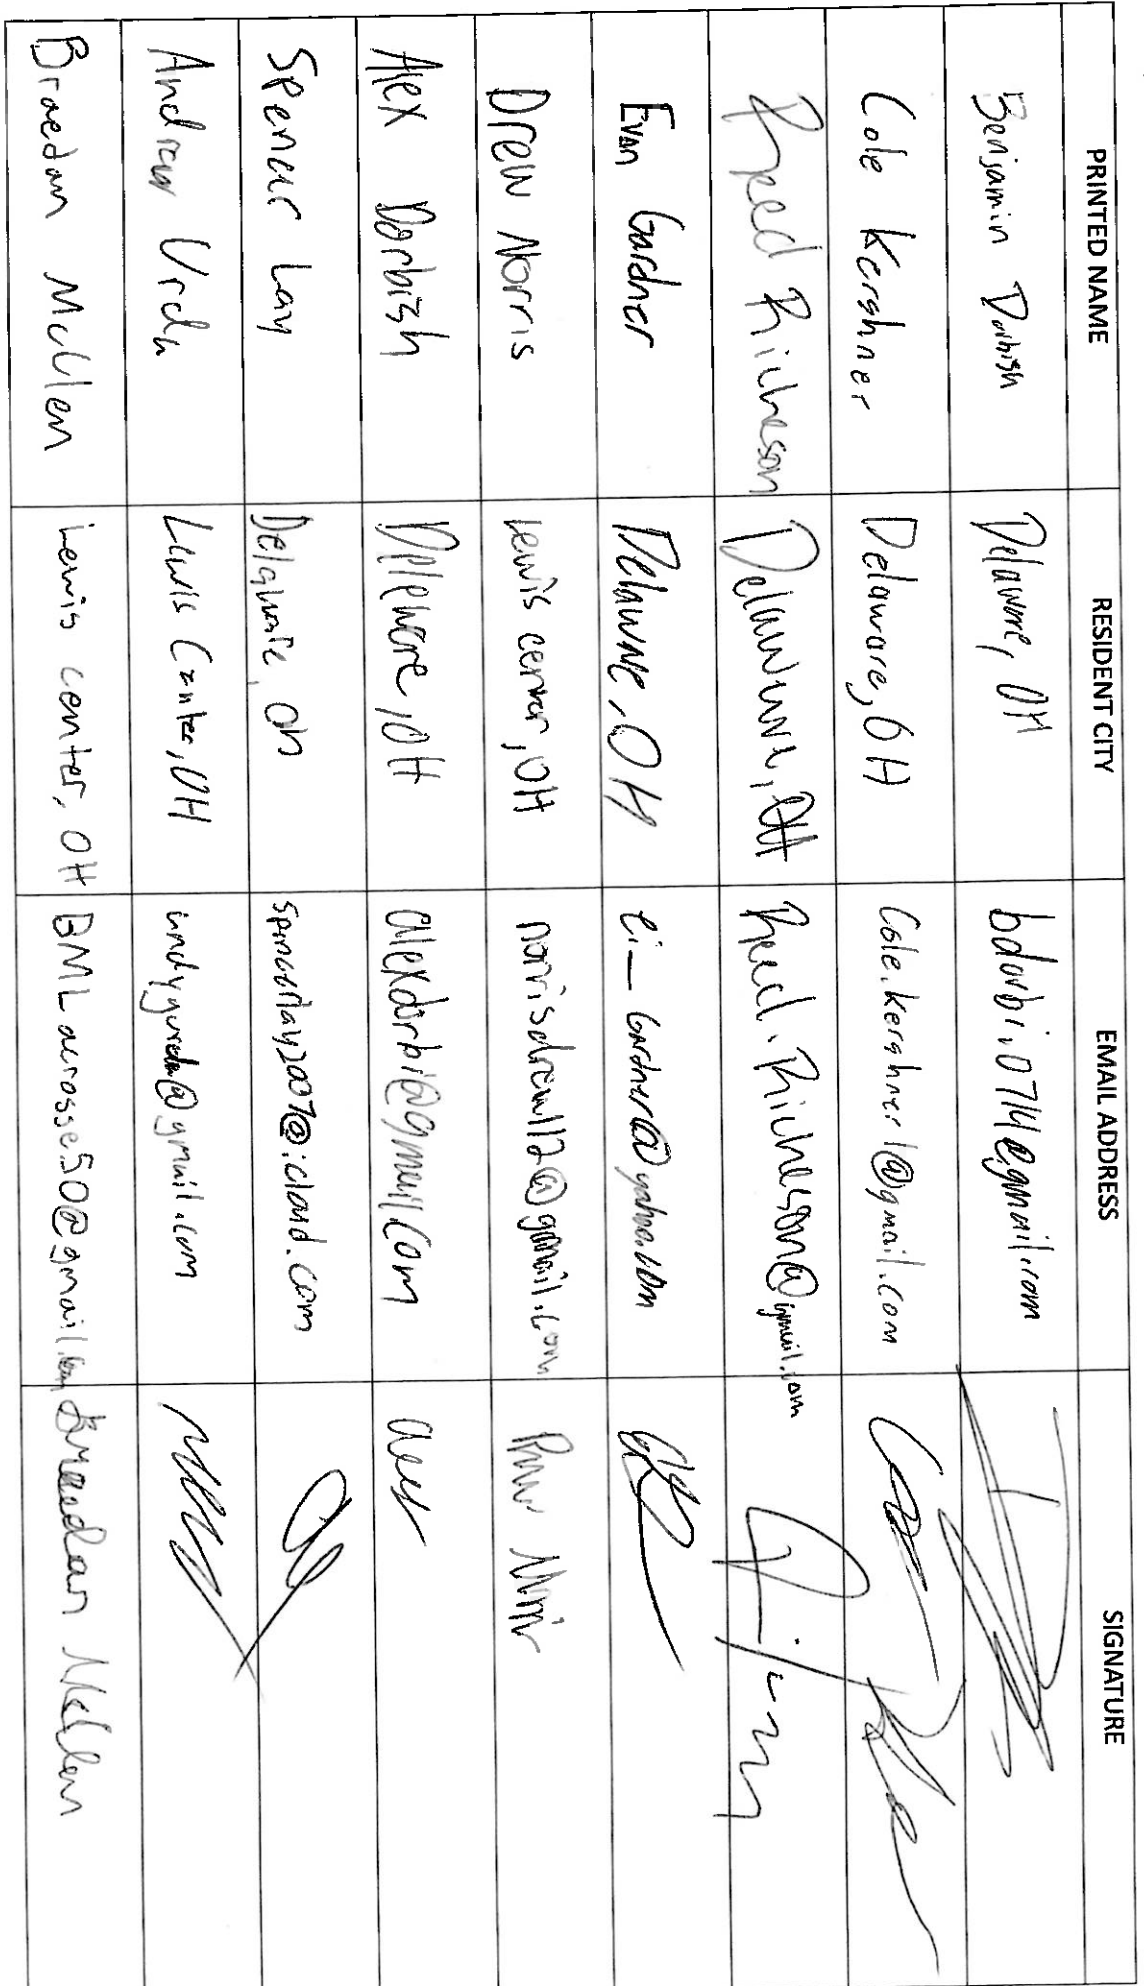 PRINTED NAME RESIDENT CITY EMAIL ADDRESS SIGNATURE
Benjamin Darbish Delaware, OH bdarbi.0714@gmail.com
Cole Kershner Delaware, OH Cole.kershner1@gmail.com
Reed Richeson Delaware, OH Reed.Richeson@gmail.com
Evan Gardner Delaware, OH ei_Gardner@yahoo.com
Drew Norris lewis center, OH norrisdrew112@gmail.com Drew Norris
Alex Darbish Deleware, OH alexdarbi@gmail.com
Spencer Lay Delaware, oh spencerlay2007@icloud.com
Andrew Lewis Center, OH @gmail.com
Braedan McClen Lewis center, OH BMLacrosse50@gmail.com Braedan McClen